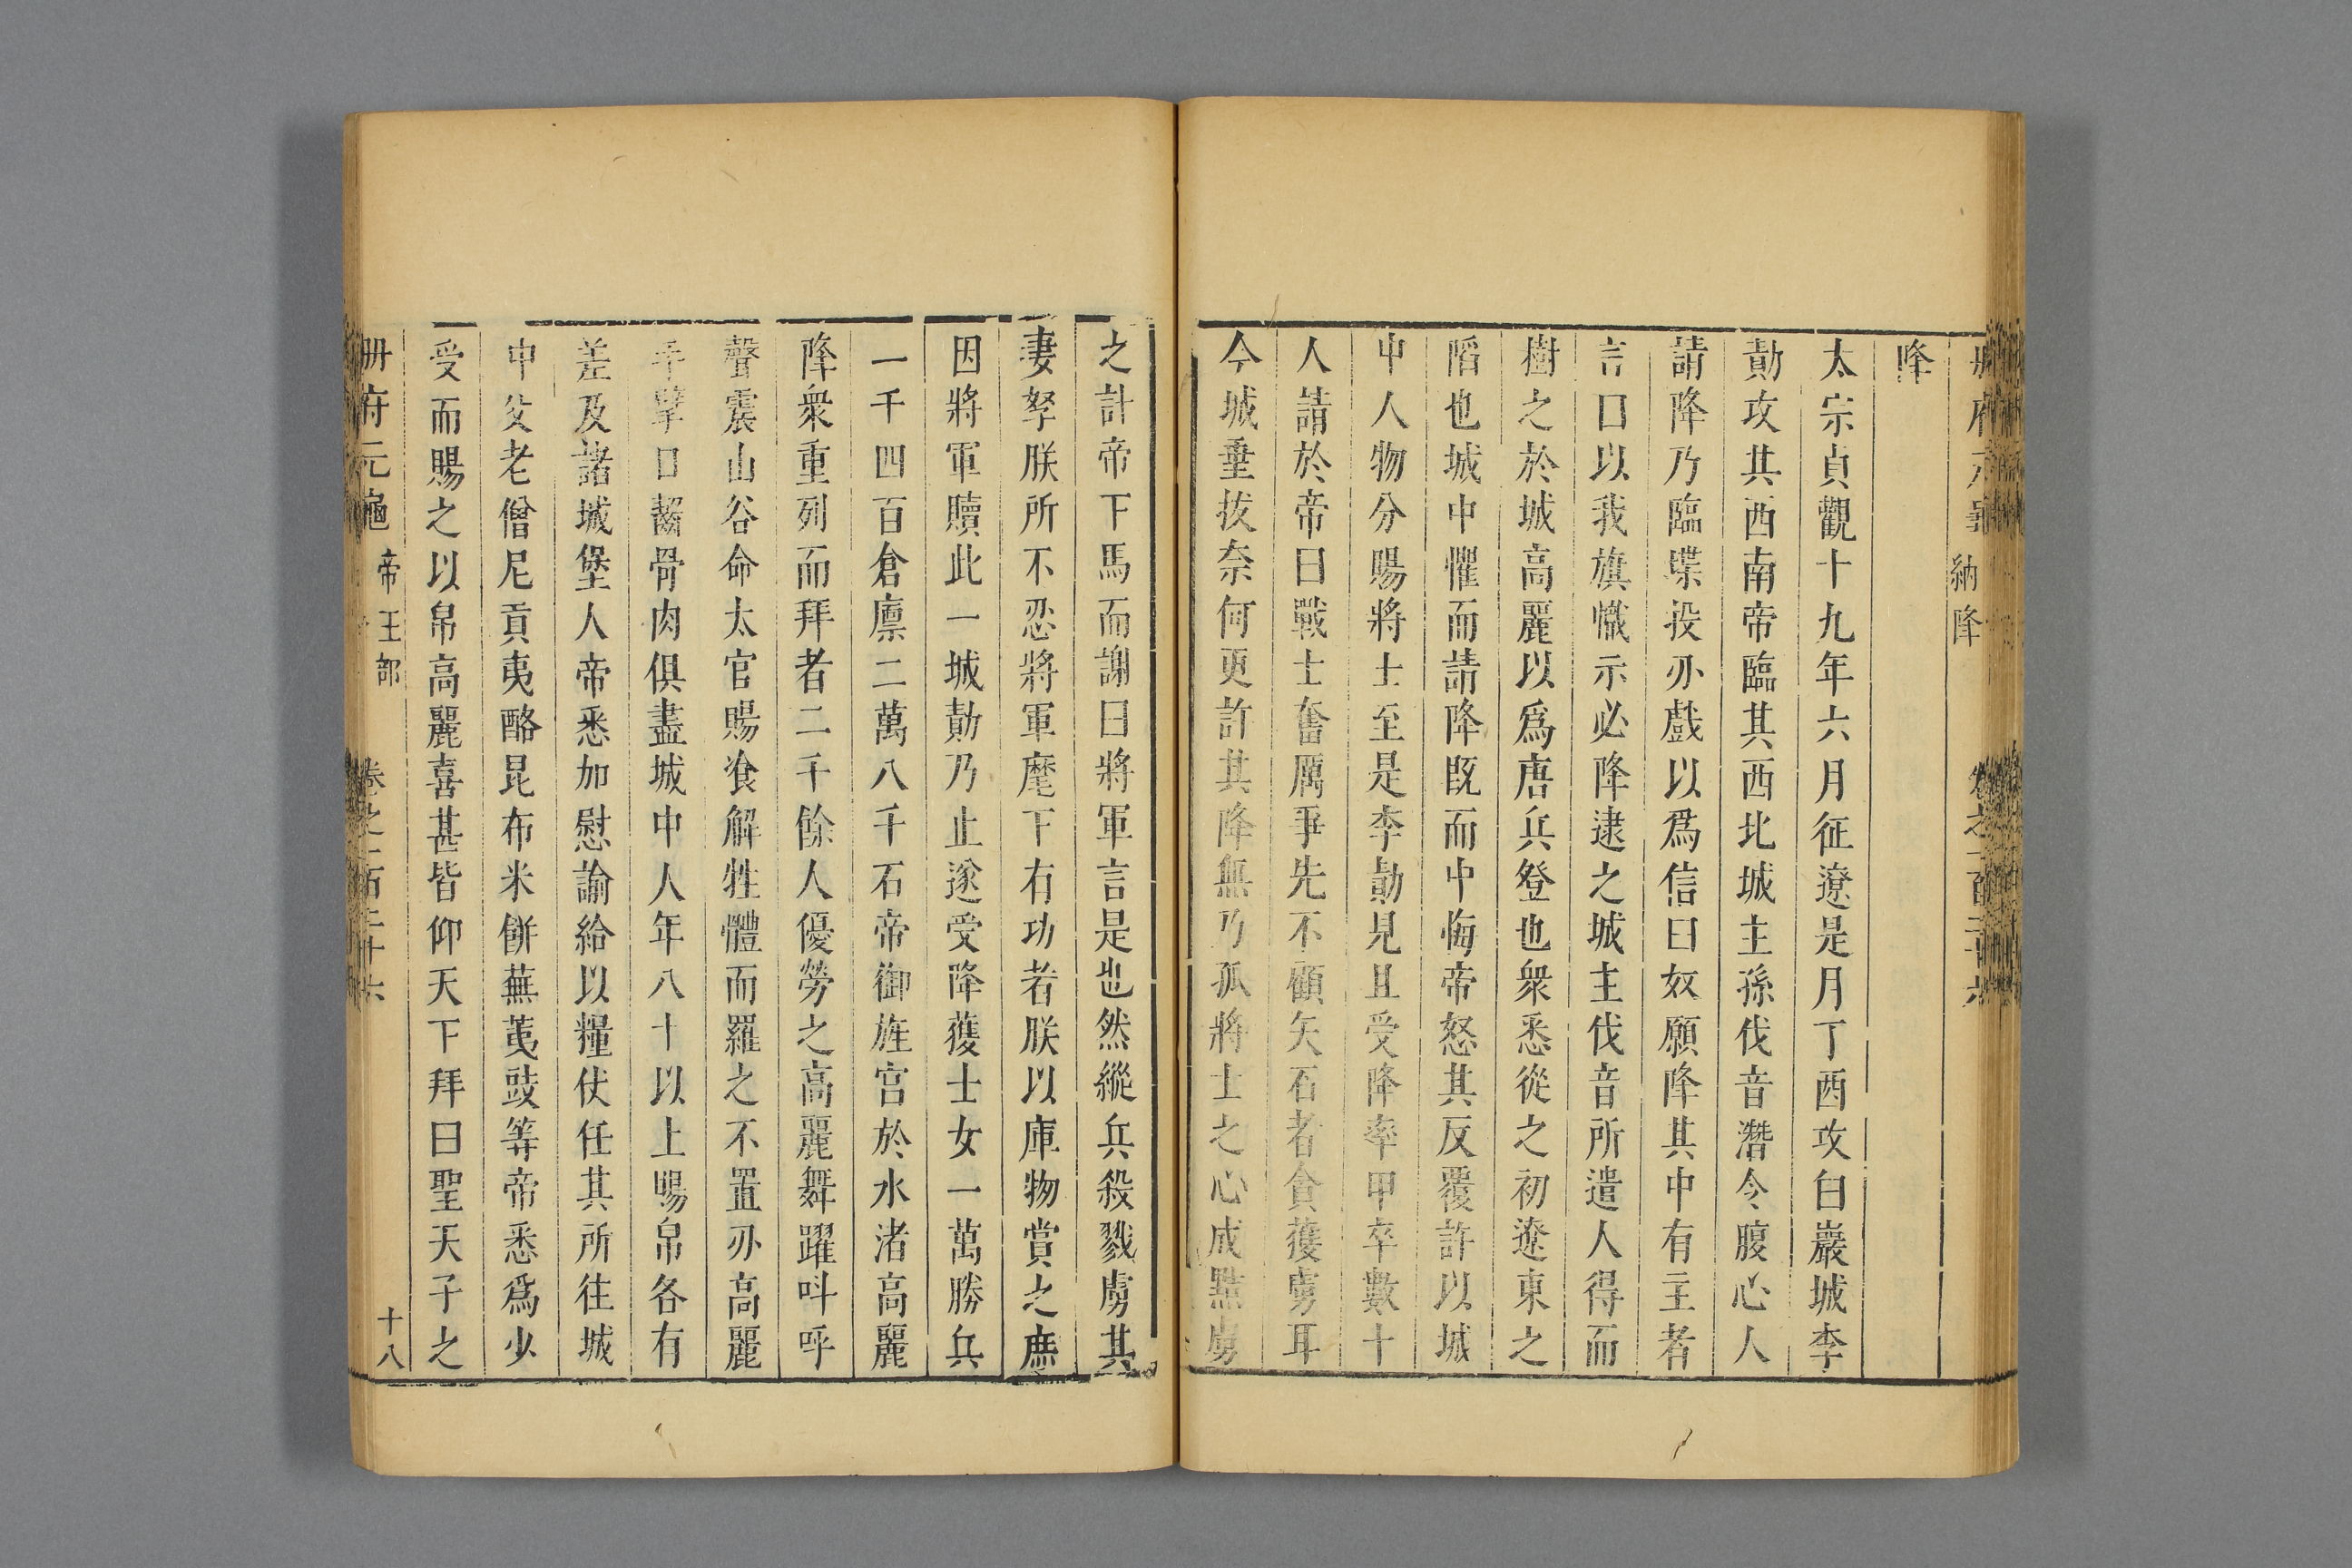 納降
降
太宗貞觀十九年六月征遼是月丁酉攻白巖城李
勣攻其西南帝臨其西北城主孫伐音潛令腹心人
請降乃臨堞投刅戲以爲信曰奴願降其中有主者
言曰以我旗幟示必降逮之城主伐音所遣人得而
樹之於城高麗以爲唐兵登也衆悉從之初遼東之
陷也城中懼而請降既而中悔帝怒其反覆許以城
中人物分賜將士至是李勣見且受降率甲卒數十
人請於帝曰戰士奮厲爭先不顧矢石者貪獲虜耳
今城垂拔奈何更許其降無乃孤將士之心成黠虜
之計帝下馬而謝曰將軍言是也然縱兵殺戮虜其
妻孥朕所不忍將軍麾下有功者朕以庫物賞之庶
因將軍贖此一城勣乃止遂受降獲士女一萬勝兵
一千四百倉廪二萬八千石帝御旌宫於水渚高麗
降衆重列而拜者二千餘人優勞之高麗舞躍呌呼
聲震山谷命太官賜飡解牲體而羅之不置刅高麗
手擘口齧骨肉俱盡城中人年八十以上賜帛各有
差及諸城堡人帝悉加慰諭給以糧仗任其所往城
中父老僧尼貢夷酪昆布米餅蕪荑豉等帝悉爲少
受而賜之以帛高麗喜甚皆仰天下拜曰聖天子之
册府元龜 帝王部 卷之一百二十六 十八